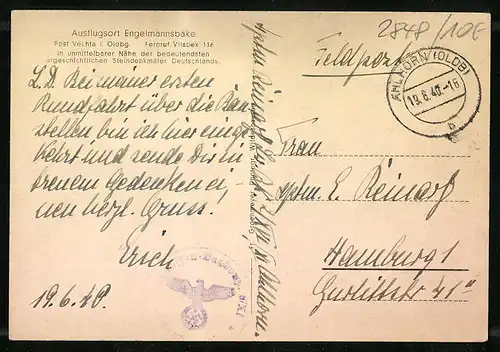 Ausflugsort Engelmannsbäke
Post Vechta i. Oldbg. Fernruf Visbek 116
In unmittelbarer Nähe der bedeutendsten
urgeschichtlichen Steindenkmäler Deutschlands.
L.D. Bei meiner ersten
Rundfahrt über die Bau-
stellen bin ich hier einge-
kehrt und sende Dir in
treuem Gedenken ei-
nen herzl. Gruss.
Erich
19.6.40.
2848/10€
Feldpost
AHLHORN (OLDB)
19.6.40.-18
b
Frau
E. Reinarz
Hamburg 1
Gurlittstr 41